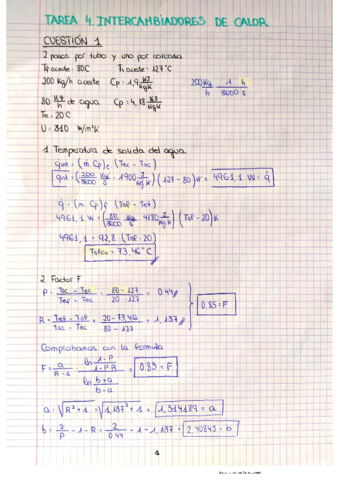 TAREA 4. INTERCAMBIADORES DE CALOR
CUESTIÓN 1
2 pasos por tubo y uno por carcasa
Tf aceite: 80C Ti aceite = 127°C
200 Kg/h aceite Cp = 1,9 KJ/KgK 200Kg/h 1 h/3600 s
80 Kg/h de agua Cp = 4,18 KJ/KgK
Te = 20°C
U = 310 W/m²K
1. Temperatura de salida del agua
q = (m Cp)c (Tec - Tsc)
q = (200/3600 Kg/s · 1900 J/KgK) (127 - 80)K = 4961,1 W = q
q = (m Cp)f (Tsf - Tef)
4961,1 W = (80/3600 Kg/s 4180 J/KgK) (Tsf - 20)K
4961,1 = 92,8 (Tsf - 20)
= 73,46°C
2. Factor F
P = Tsc - Tec / Tef - Tec = 80 - 127 / 20 - 127 = 0.44
0.85 = F
R = Tef - Tsf / Tsc - Tec = 20 - 73.46 / 80 - 127 = 1,137
Comprobamos con la formula
F = a / R - 1 · ln 1-P / 1-PR / ln b+a / b-a = 0.85 = F
a = √R² + 1 = √1,137² + 1 = 1,514189 = a
b = 2/P - 1 - R = 2/0.44 - 1 - 1,137 = 2,40843 = b
1